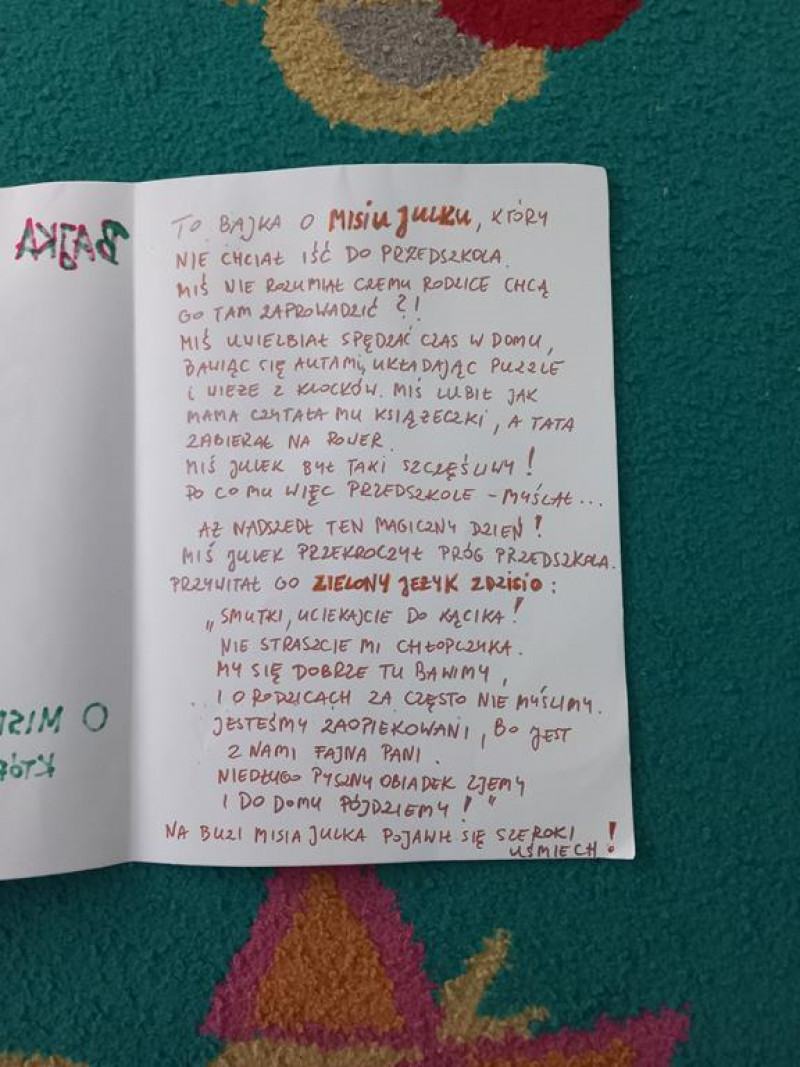 BAJKA
O MISI
KTÓR
TO BAJKA O MISIU JULKU, KTÓRY
NIE CHCIAŁ IŚĆ DO PRZEDSZKOLA.
MIŚ NIE ROZUMIAŁ CZEMU RODZICE CHCĄ
GO TAM ZAPROWADZIĆ ?!
MIŚ UWIELBIAŁ SPĘDZAĆ CZAS W DOMU,
BAWIĄC SIĘ AUTAMI, UKŁADAJĄC PUZZLE
I WIEŻE Z KLOCKÓW. MIŚ LUBIŁ JAK
MAMA CZYTAŁA MU KSIĄŻECZKI, A TATA
ZABIERAŁ NA ROWER.
MIŚ JULEK BYŁ TAKI SZCZĘŚLIWY!
PO CO MU WIĘC PRZEDSZKOLE - MYŚLAŁ...
AŻ NADSZEDŁ TEN MAGICZNY DZIEŃ!
MIŚ JULEK PRZEKROCZYŁ PRÓG PRZEDSZKOLA.
PRZYWITAŁ GO ZIELONY JEŻYK ZDZISIO:
„SMUTKI, UCIEKAJCIE DO KĄCIKA!
NIE STRASZCIE MI CHŁOPCZYKA.
MY SIĘ DOBRZE TU BAWIMY,
I O RODZICACH ZA CZĘSTO NIE MYŚLIMY.
JESTEŚMY ZAOPIEKOWANI, BO JEST
Z NAMI FAJNA PANI.
NIEDŁUGO PYSZNY OBIADEK ZJEMY
I DO DOMU PÓJDZIEMY!"
NA BUZI MISIA JULKA POJAWIŁ SIĘ SZEROKI
UŚMIECH!